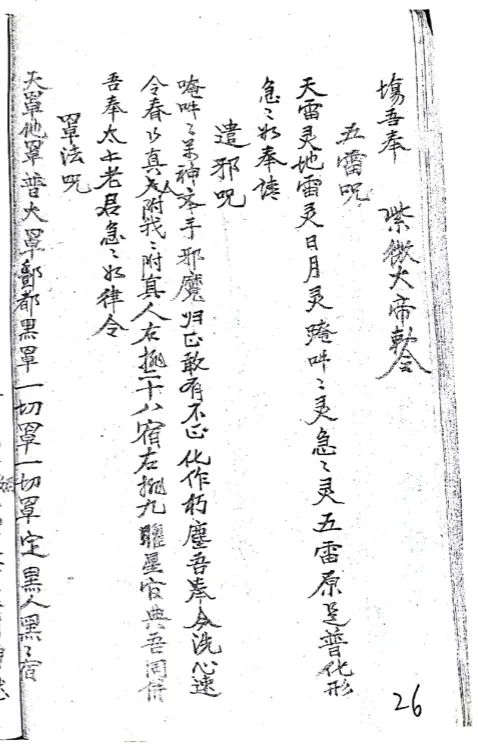 塲吾奉 紫微大帝勅令
五雷呪
天雷灵地雷灵日月灵唵吽〻灵急〻灵五雷原是普化形
急〻如奉读
遣邪呪
唵吽〻神 手邪魔归正敢有不正化作朽塵吾奉令洗心速
令 真人附我〻附真人右 二十八宿右 九曜星官 吾同
吾奉太上老君急〻如律令
罩法呪
天罩他罩普大罩酆都黑罩一切罩一切罩定黑人黑〻宿
26